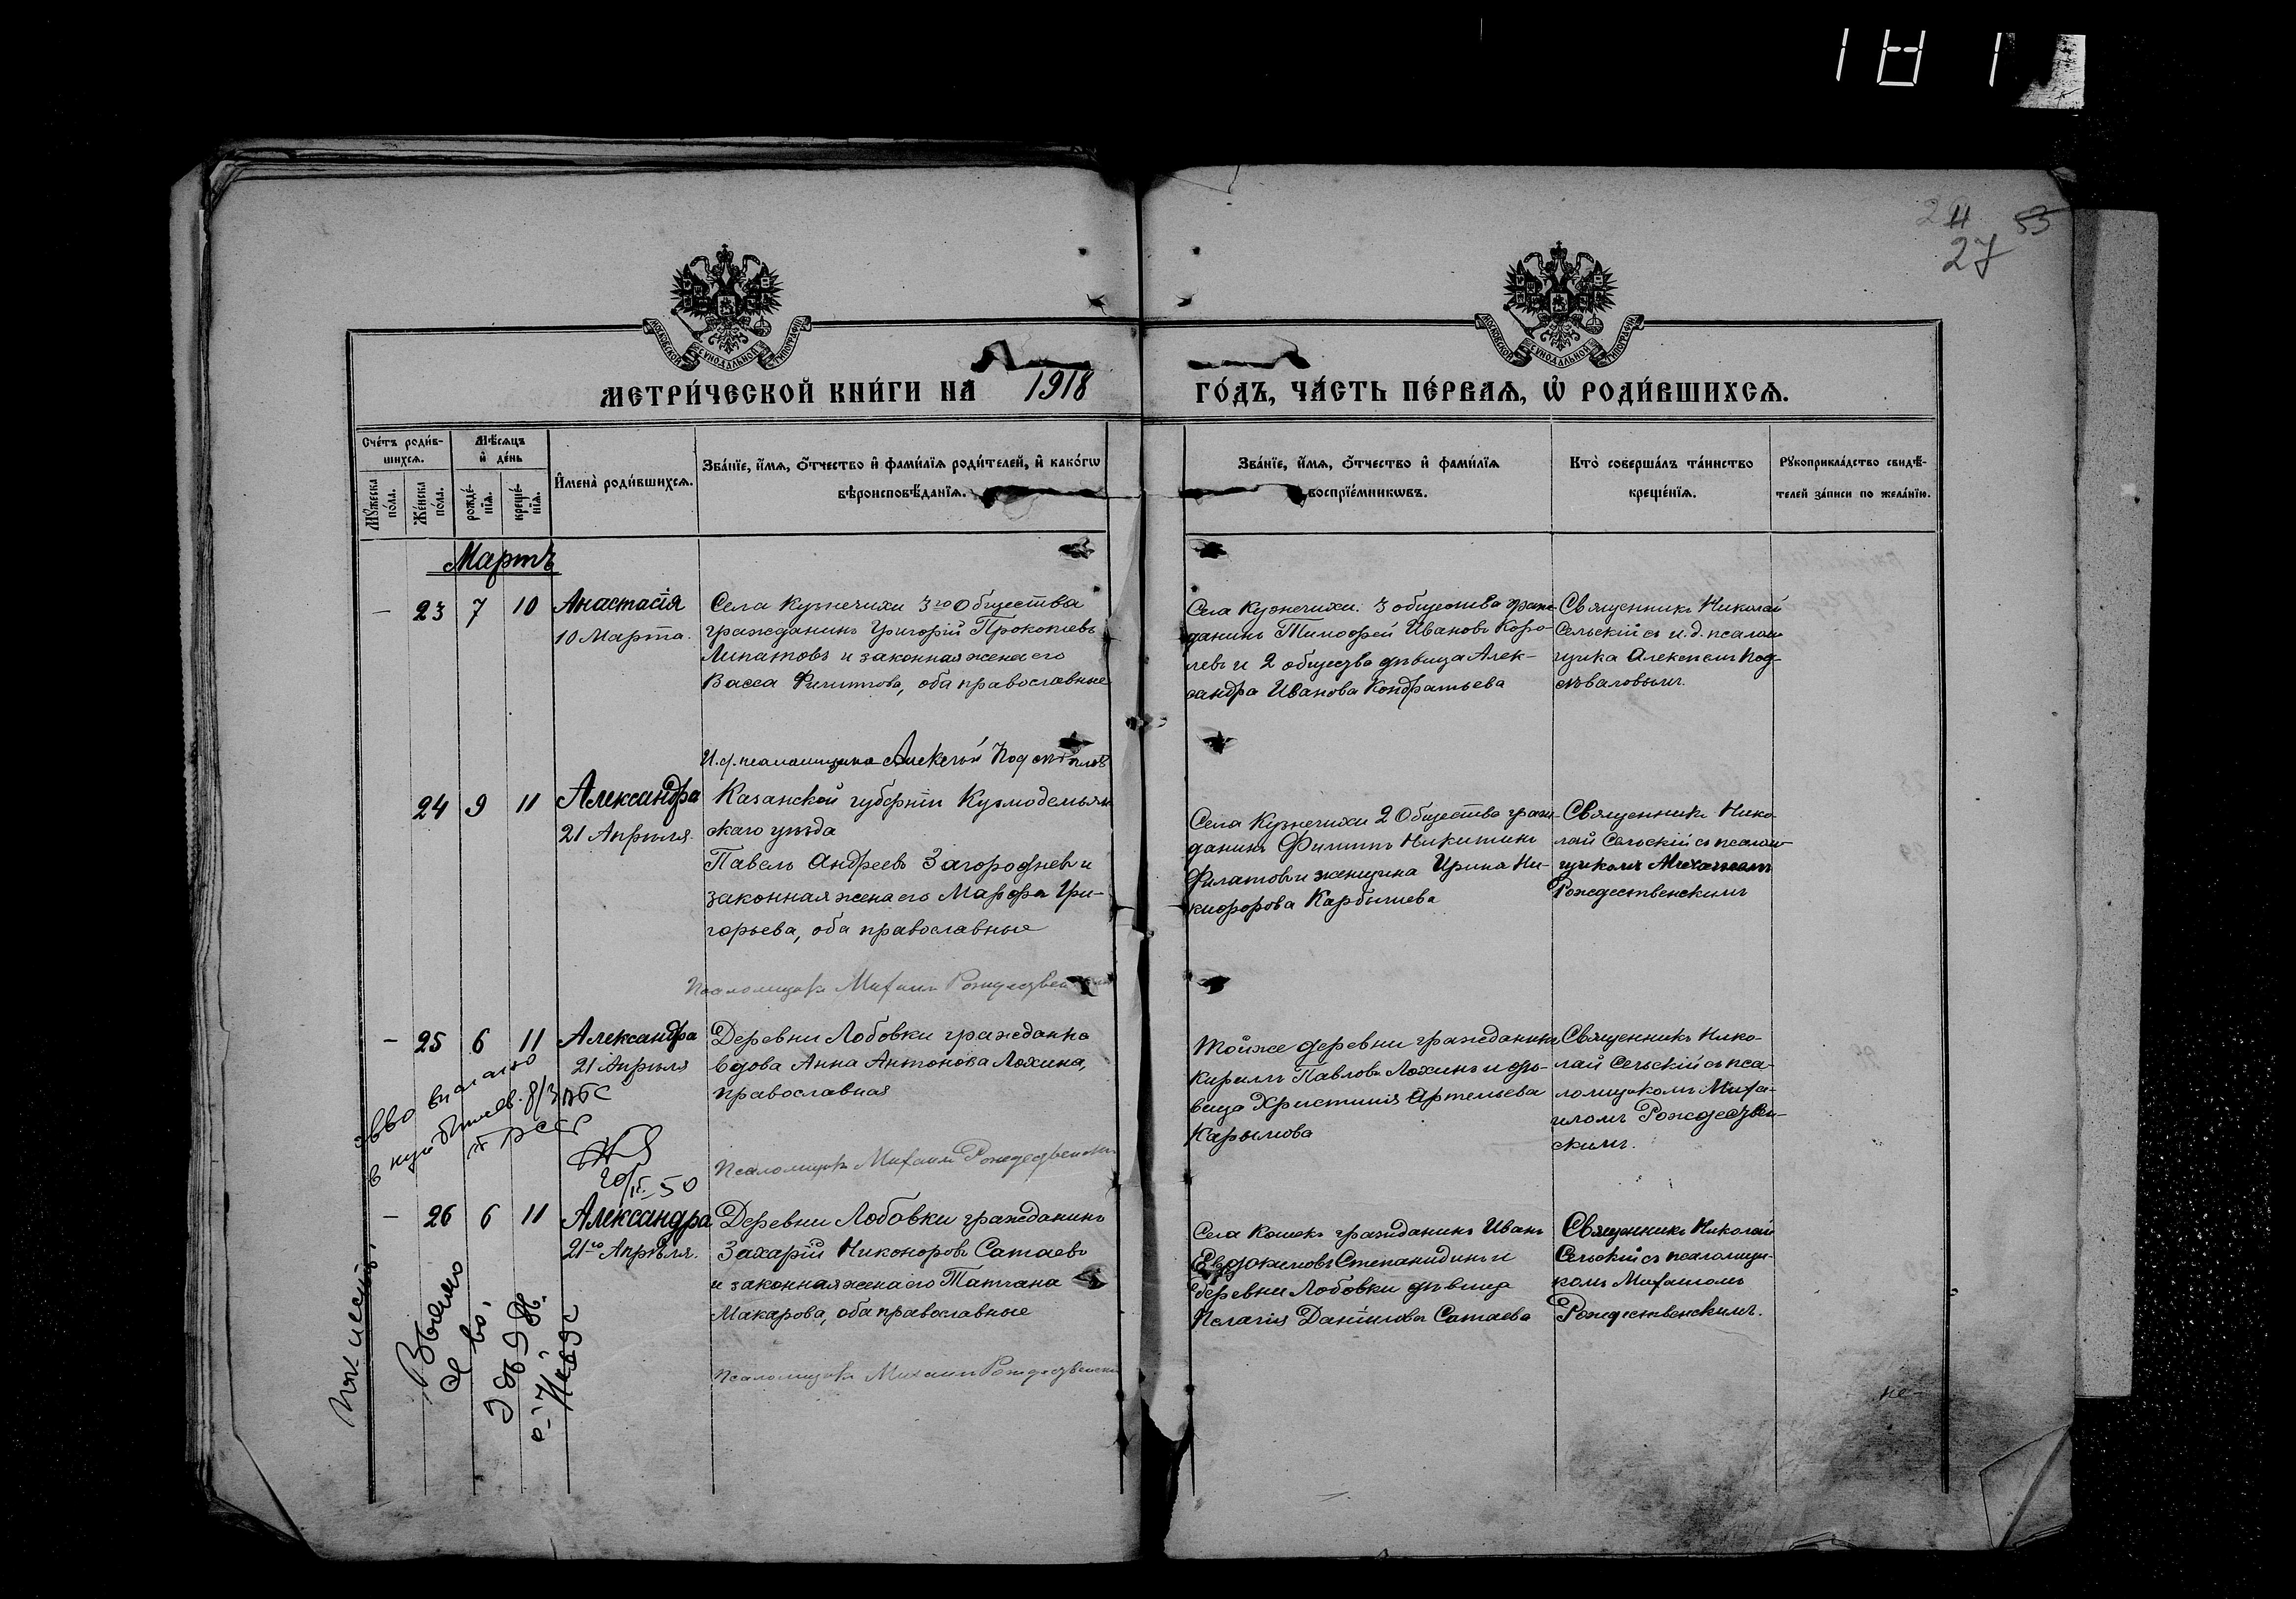 181
24 53
27
МОСКОВСКОЙ СУНОДАЛЬНОЙ ТИПОГРАФІИ
МОСКОВСКОЙ СУНОДАЛЬНОЙ ТИПОГРАФІИ
МЕТРИ́ЧЕСКОЙ КНИ́ГИ НА 1918 ГО́ДЪ, ЧА́СТЬ ПЕ́РВАѦ, Ѡ҆ РОДИ́ВШИХСѦ.
Сче́тъ роди́в-
шихсѧ.
Мꙋ́жеска по́ла.
Же́нска по́ла.
Мѣ́сѧцъ
и҆ де́нь
рожде́-
нїѧ.
креще́-
нїѧ.
И҆мена̀ роди́вшихсѧ.
Зва́нїе, и҆́мѧ, ѻ҆́тчество и҆ фами́лїѧ роди́телей, и҆ како́гѡ
вѣроисповѣ́данїѧ.
Зва́нїе, и҆́мѧ, ѻ҆́тчество и҆ фами́лїѧ
воспрїе́мникѡвъ.
Кто̀ соверша́лъ та́инство
креще́нїѧ.
Рꙋкоприкла́дство свидѣ́-
телей за́писи по жела́нїю.
Мартъ
— 23 7 10 Анастасія
10 Марта.
Села Кузнечихи 3го Общества
гражданинъ Григорій Прокопіевъ
Липатовъ и законная жена его
Васса Филиппова, оба православные
Села Кузнечихи 3 общества граж-
данинъ Тимофей Ивановъ Коро-
левъ и 2 общества дѣвица Алек-
сандра Иванова Кондратьева
Священникъ Николай
Сельскій съ и.д. псалом-
щика Алексѣемъ Под-
И.д. псаломщика Алексѣй
24 9 11 Александра
21 Апрѣля.
Казанской губерніи Кузмодемьян-
скаго уѣзда
Павелъ Андреевъ Загородневъ и
законная жена его Марфа Гри-
горьева, оба православные
Села Кузнечихи 2 Общества граж-
данинъ Филиппъ Никитинъ
Филатовъ и женщина Ирина Ни-
кифорова Карбышева
Священникъ Нико-
лай Сельскій съ псалом-
щикомъ Михаиломъ
Рождественскимъ
Псаломщикъ Михаилъ Рождественскій
— 25 6 11 Александра
21 Апрѣля
Деревни Лобовки гражданка
вдова Анна Антонова Лохина,
православная
Тойже деревни гражданинъ
Кириллъ Павловъ Лохинъ и дѣ-
вица Христинія Артемьева
Карымова
Священникъ Нико-
лай Сельскій съ пса-
ломщикомъ Миха-
иломъ Рождествен-
скимъ.
20/II-50
Псаломщикъ Михаилъ Рождественскій
— 26 6 11 Александра
21го Апрѣля.
Деревни Лобовки гражданинъ
Захарій Никоноровъ Сатаевъ
и законная жена его Татіана
Макарова, оба православные
Села Кошекъ гражданинъ Иванъ
Евдокимовъ Степанидинъ и
деревни Лобовки дѣвица
Пелагія Даніилова Сатаева
Священникъ Николай
Сельскій съ псаломщи-
комъ Михаиломъ
Рождественскимъ.
Псаломщикъ Михаилъ Рождественскій